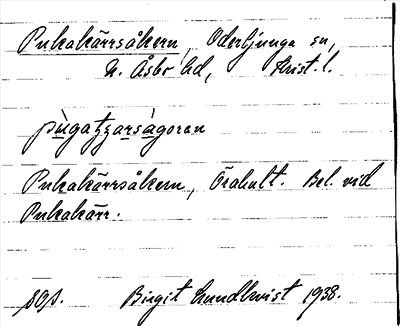 Pukakärrsåkern, Oderljunga sn,
N. Åsbo hd, Krist. l.
pùgatʒarságoran
Pukakärrsåkern, Örahult. Bel. vid
Pukakärr.
sgs. Birgit Lundkvist 1938.